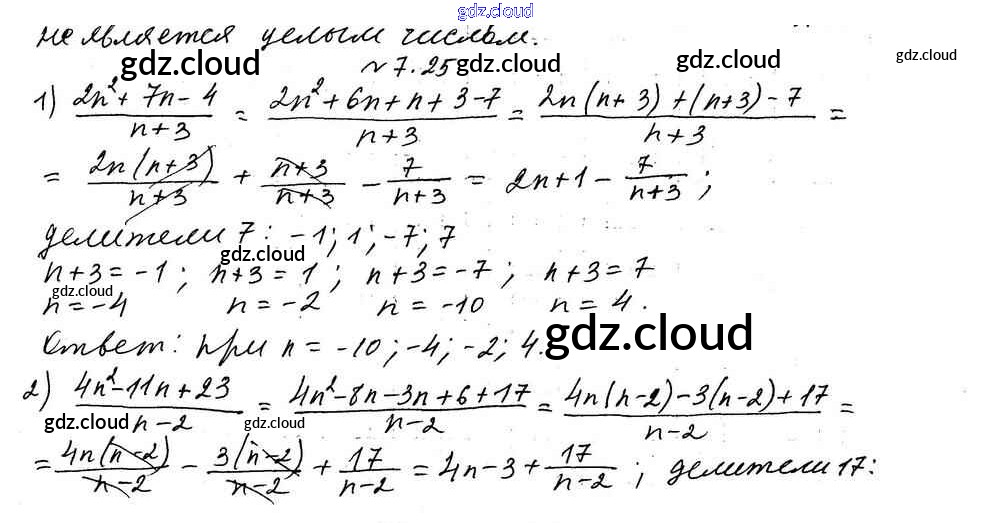 gdz.cloud
не является целым числом.
gdz.cloud № 7.25 gdz.cloud gdz.cloud
1) (2n² + 7n - 4)/(n + 3) = (2n² + 6n + n + 3 - 7)/(n + 3) = (2n(n + 3) + (n + 3) - 7)/(n + 3) =
= (2n(n + 3))/(n + 3) + (n + 3)/(n + 3) - 7/(n + 3) = 2n + 1 - 7/(n + 3);
делители 7: -1; 1; -7; 7
gdz.cloud
n + 3 = -1; n + 3 = 1; n + 3 = -7; n + 3 = 7
gdz.cloud
n = -4 n = -2 n = -10 n = 4.
gdz.cloud
Ответ: при n = -10; -4; -2; 4.
2) (4n² - 11n + 23)/(n - 2) = (4n² - 8n - 3n + 6 + 17)/(n - 2) = (4n(n - 2) - 3(n - 2) + 17)/(n - 2) =
gdz.cloud gdz.cloud
= (4n(n - 2))/(n - 2) - (3(n - 2))/(n - 2) + 17/(n - 2) = 4n - 3 + 17/(n - 2); делители 17: